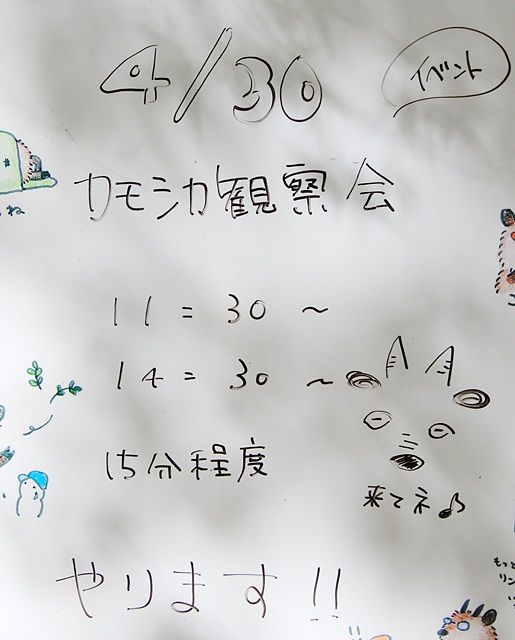 4/30
イベント
カモシカ観察会
11=30~
14=30~
15分程度
来てネ♪
やります!!